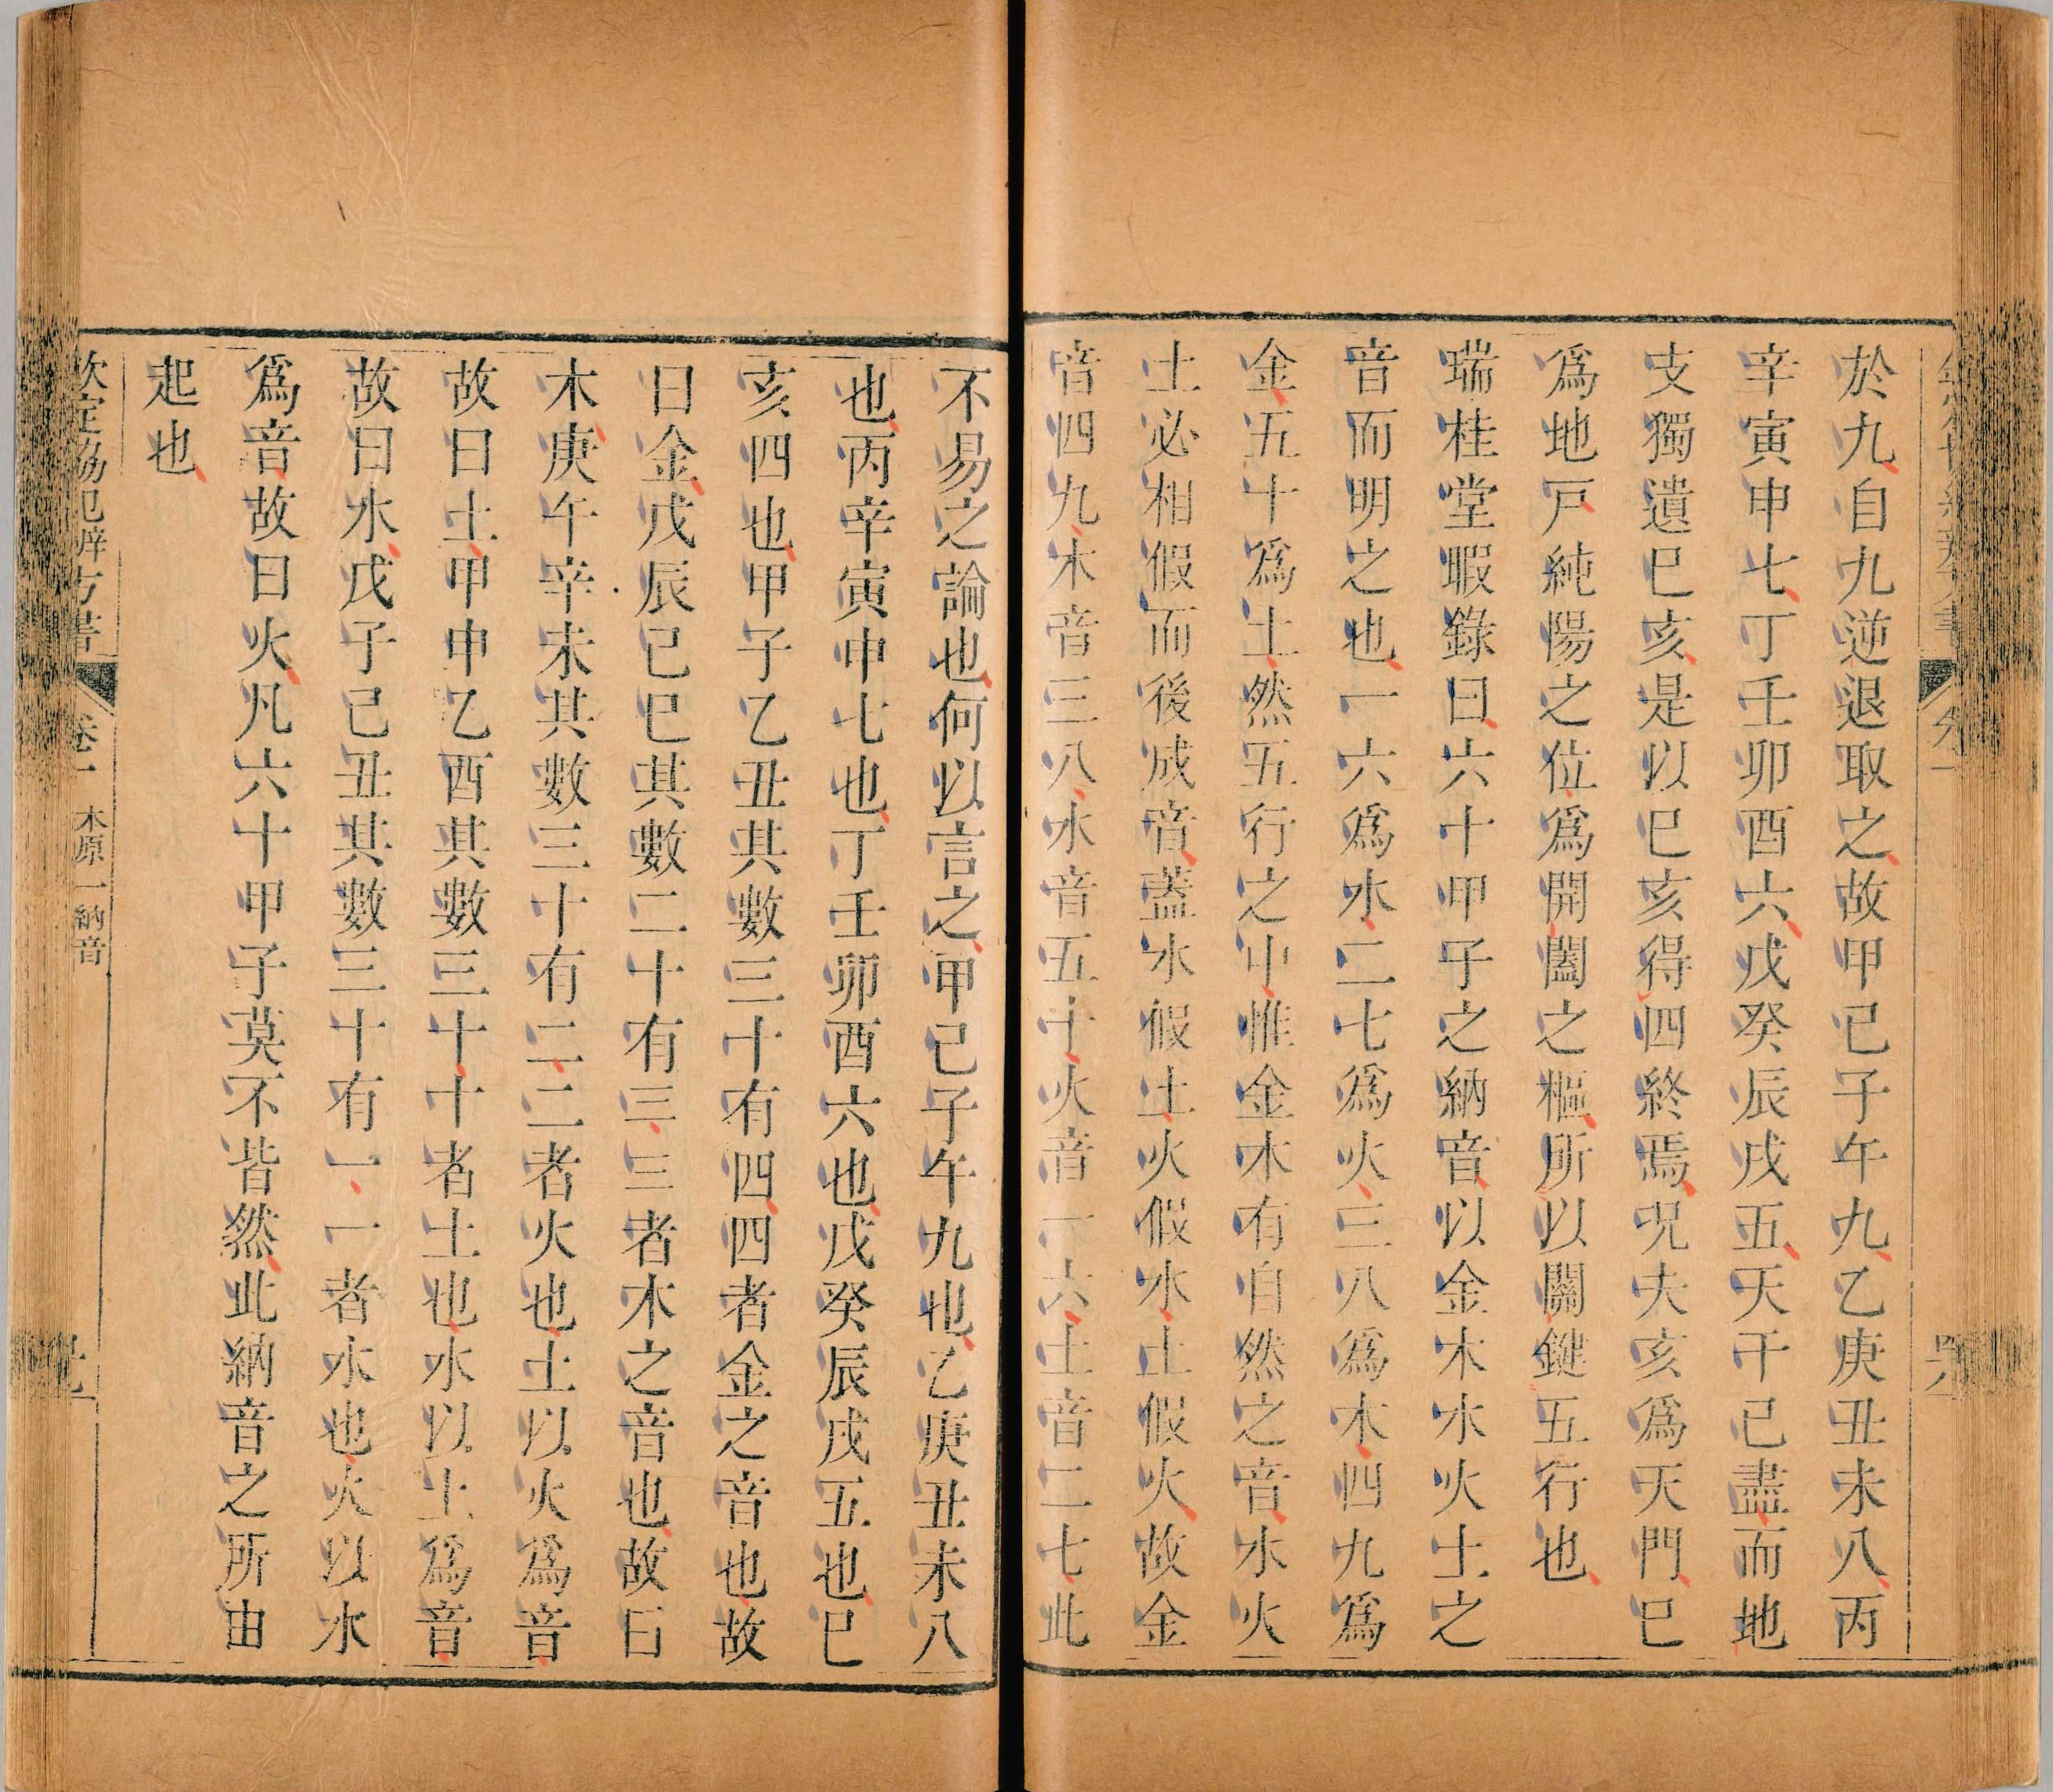 於九自九逆退取之故甲己子午九乙庚丑未八丙
辛寅申七丁壬卯酉六戊癸辰戌五天干已盡而地
支獨遺巳亥是以巳亥得四終焉况夫亥爲天門巳
爲地戸純陽之位爲開闔之樞所以關鍵五行也
瑞桂堂暇錄曰六十甲子之納音以金木水火土之
音而明之也一六爲水二七爲火三八爲木四九爲
金五十爲土然五行之中惟金木有自然之音水火
土必相假而後成音蓋水假土火假水土假火故金
音四九木音三八水音五十火音一六土音二七此
不易之論也何以言之甲己子午九也乙庚丑未八
也丙辛寅申七也丁壬卯酉六也戊癸辰戌五也巳
亥四也甲子乙丑其數三十有四四者金之音也故
曰金戊辰己巳其數二十有三三者木之音也故曰
木庚午辛未其數三十有二二者火也土以火爲音
故曰土甲申乙酉其數三十十者土也水以土爲音
故曰水戊子己丑其數三十有一一者水也火以水
爲音故曰火凡六十甲子莫不皆然此納音之所由
起也
欽定協紀辨方書 卷一 本原一納音